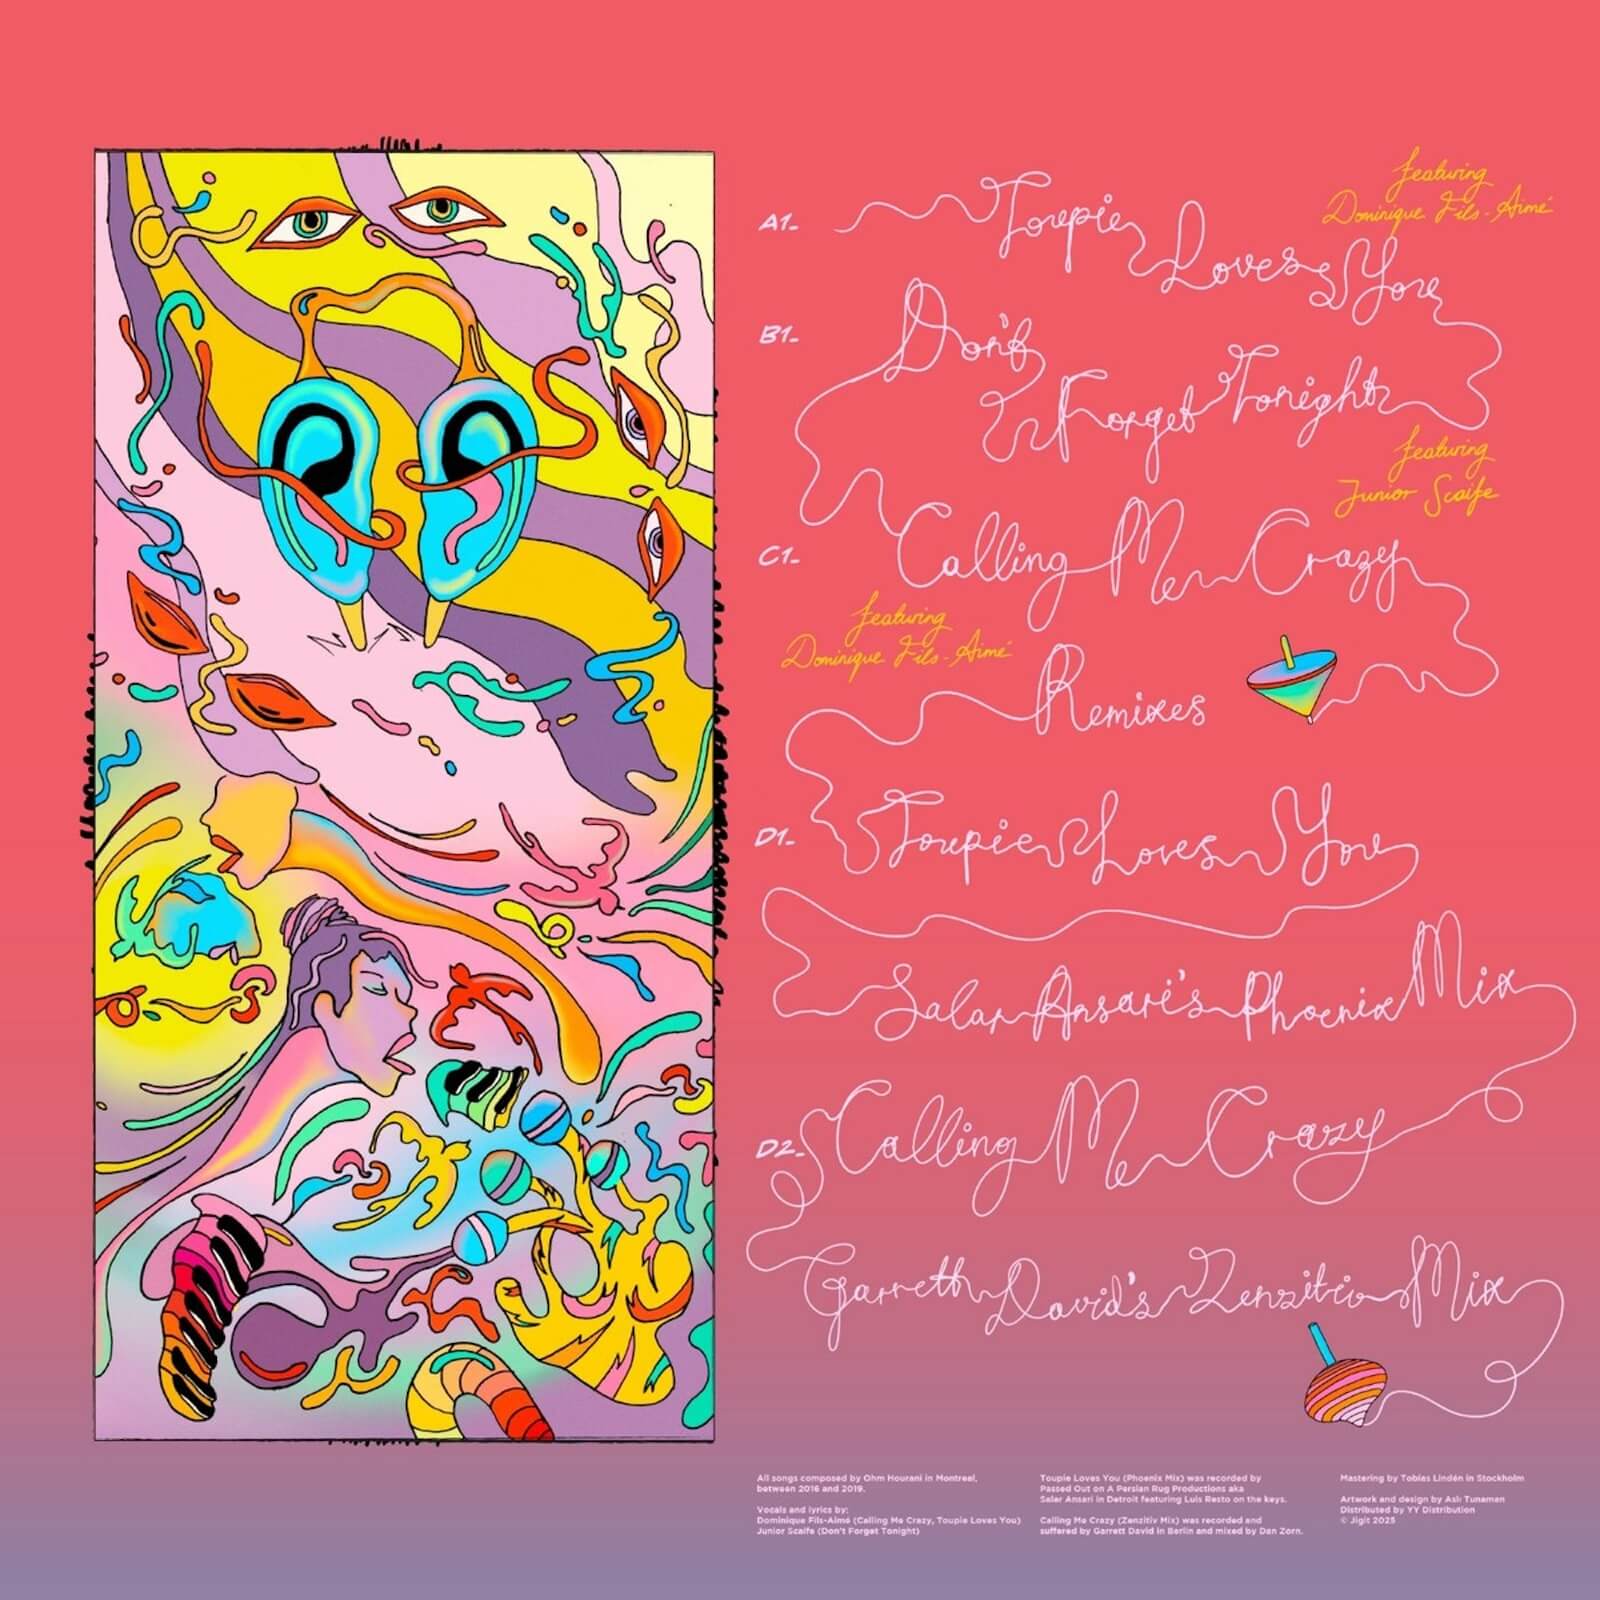 featuring
Dominique Fils-Aimé
A1_ Toupie Loves You
B1_ Don't
Forget Tonight
featuring
Junior Scaife
C1_ Calling Me Crazy
featuring
Dominique Fils-Aimé
Remixes
D1_ Toupie Loves You
Salar Ansari's Phoenix Mix
D2_ Calling Me Crazy
Garrett David's Zenzitiv Mix
All songs composed by Ohm Hourani in Montreal,
between 2016 and 2019.
Vocals and lyrics by:
Dominique Fils-Aimé (Calling Me Crazy, Toupie Loves You)
Junior Scaife (Don't Forget Tonight)
Toupie Loves You (Phoenix Mix) was recorded by
Passed Out on A Persian Rug Productions aka
Salar Ansari in Detroit featuring Luis Resto on the keys.
Calling Me Crazy (Zenzitiv Mix) was recorded and
suffered by Garrett David in Berlin and mixed by Dan Zorn.
Mastering by Tobias Lindén in Stockholm
Artwork and design by Aslı Tunaman
Distributed by YY Distribution
© Jigit 2025